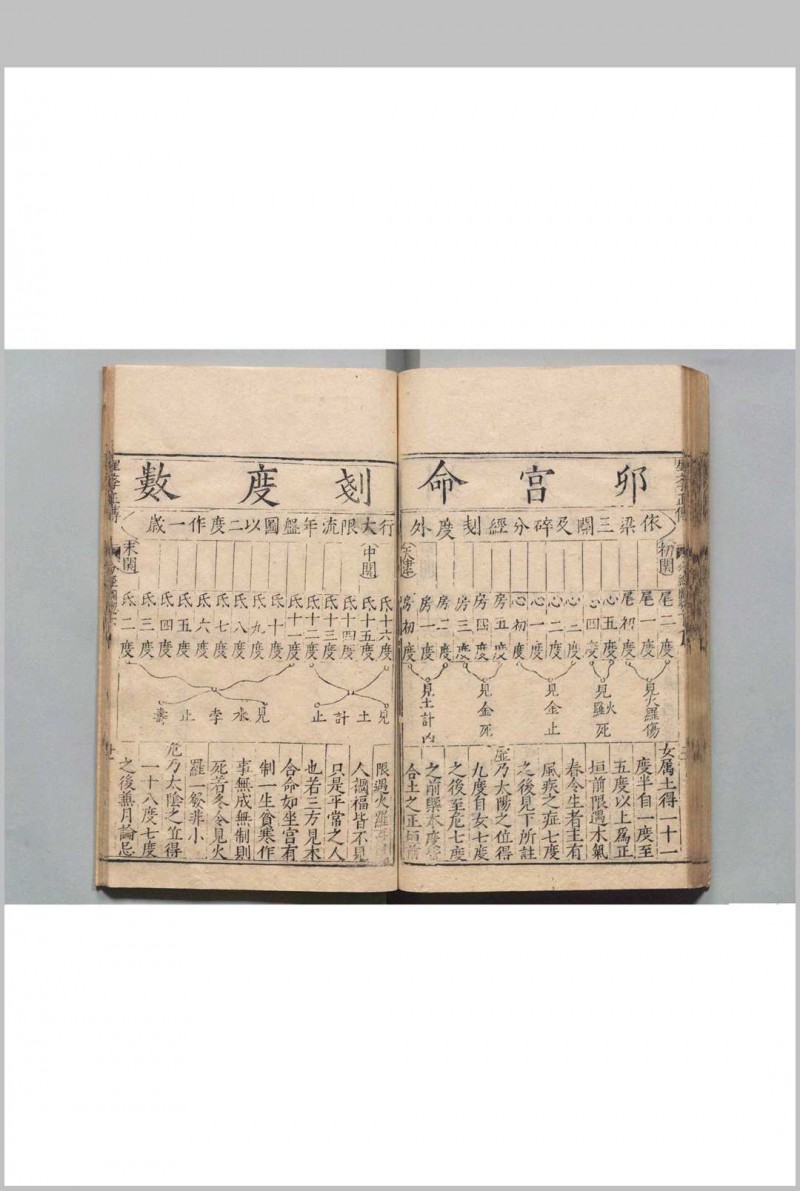 卯宮命
依梁三關及碎分經刻度外
初關
尾二度
尾一度
尾初度
心五度
心四度
心三度
心二度
心一度
心初度
房五度
房四度
房三度
房二度
房一度
房初度
見火羅傷
見火羅死
見金止
見金死
見土計凶
女属土得一十一
度半自一度至
五度以上爲正
垣前限遇木氣
春令生者主有
風疾之症七度
之後見下所註
虛乃太陽之位得
九度自女七度
之後至危七度
之前
合土之正垣前
刻度數
行大限流年盤圖以二度作一歲
中關
氐十六度
氐十五度
氐十四度
氐十三度
氐十二度
氐十一度
氐十度
氐九度
氐八度
氐七度
氐六度
氐五度
氐四度
氐三度
氐二度
末關
見土計止
見水孛止壽
限遇火羅
人調福皆不見
只是平常之人
也若三方見木
合命如坐宮有
制一生貧寒作
事無成無制則
死若冬令見火
羅一發非小
危乃太陰之位得
一十八度七度
之後兼月論忌